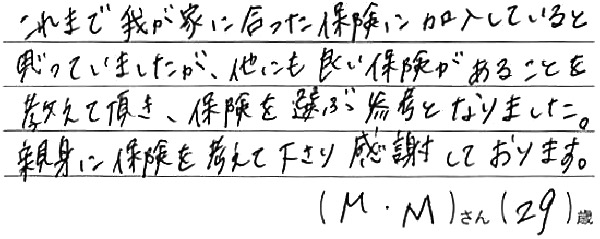 これまで我が家に合った保険に加入していると
思っていましたが、他にも良い保険があることを
教えて頂き、保険を選ぶ参考となりました。
親身に保険を考えて下さり感謝しております。
(M・M)さん(29)歳